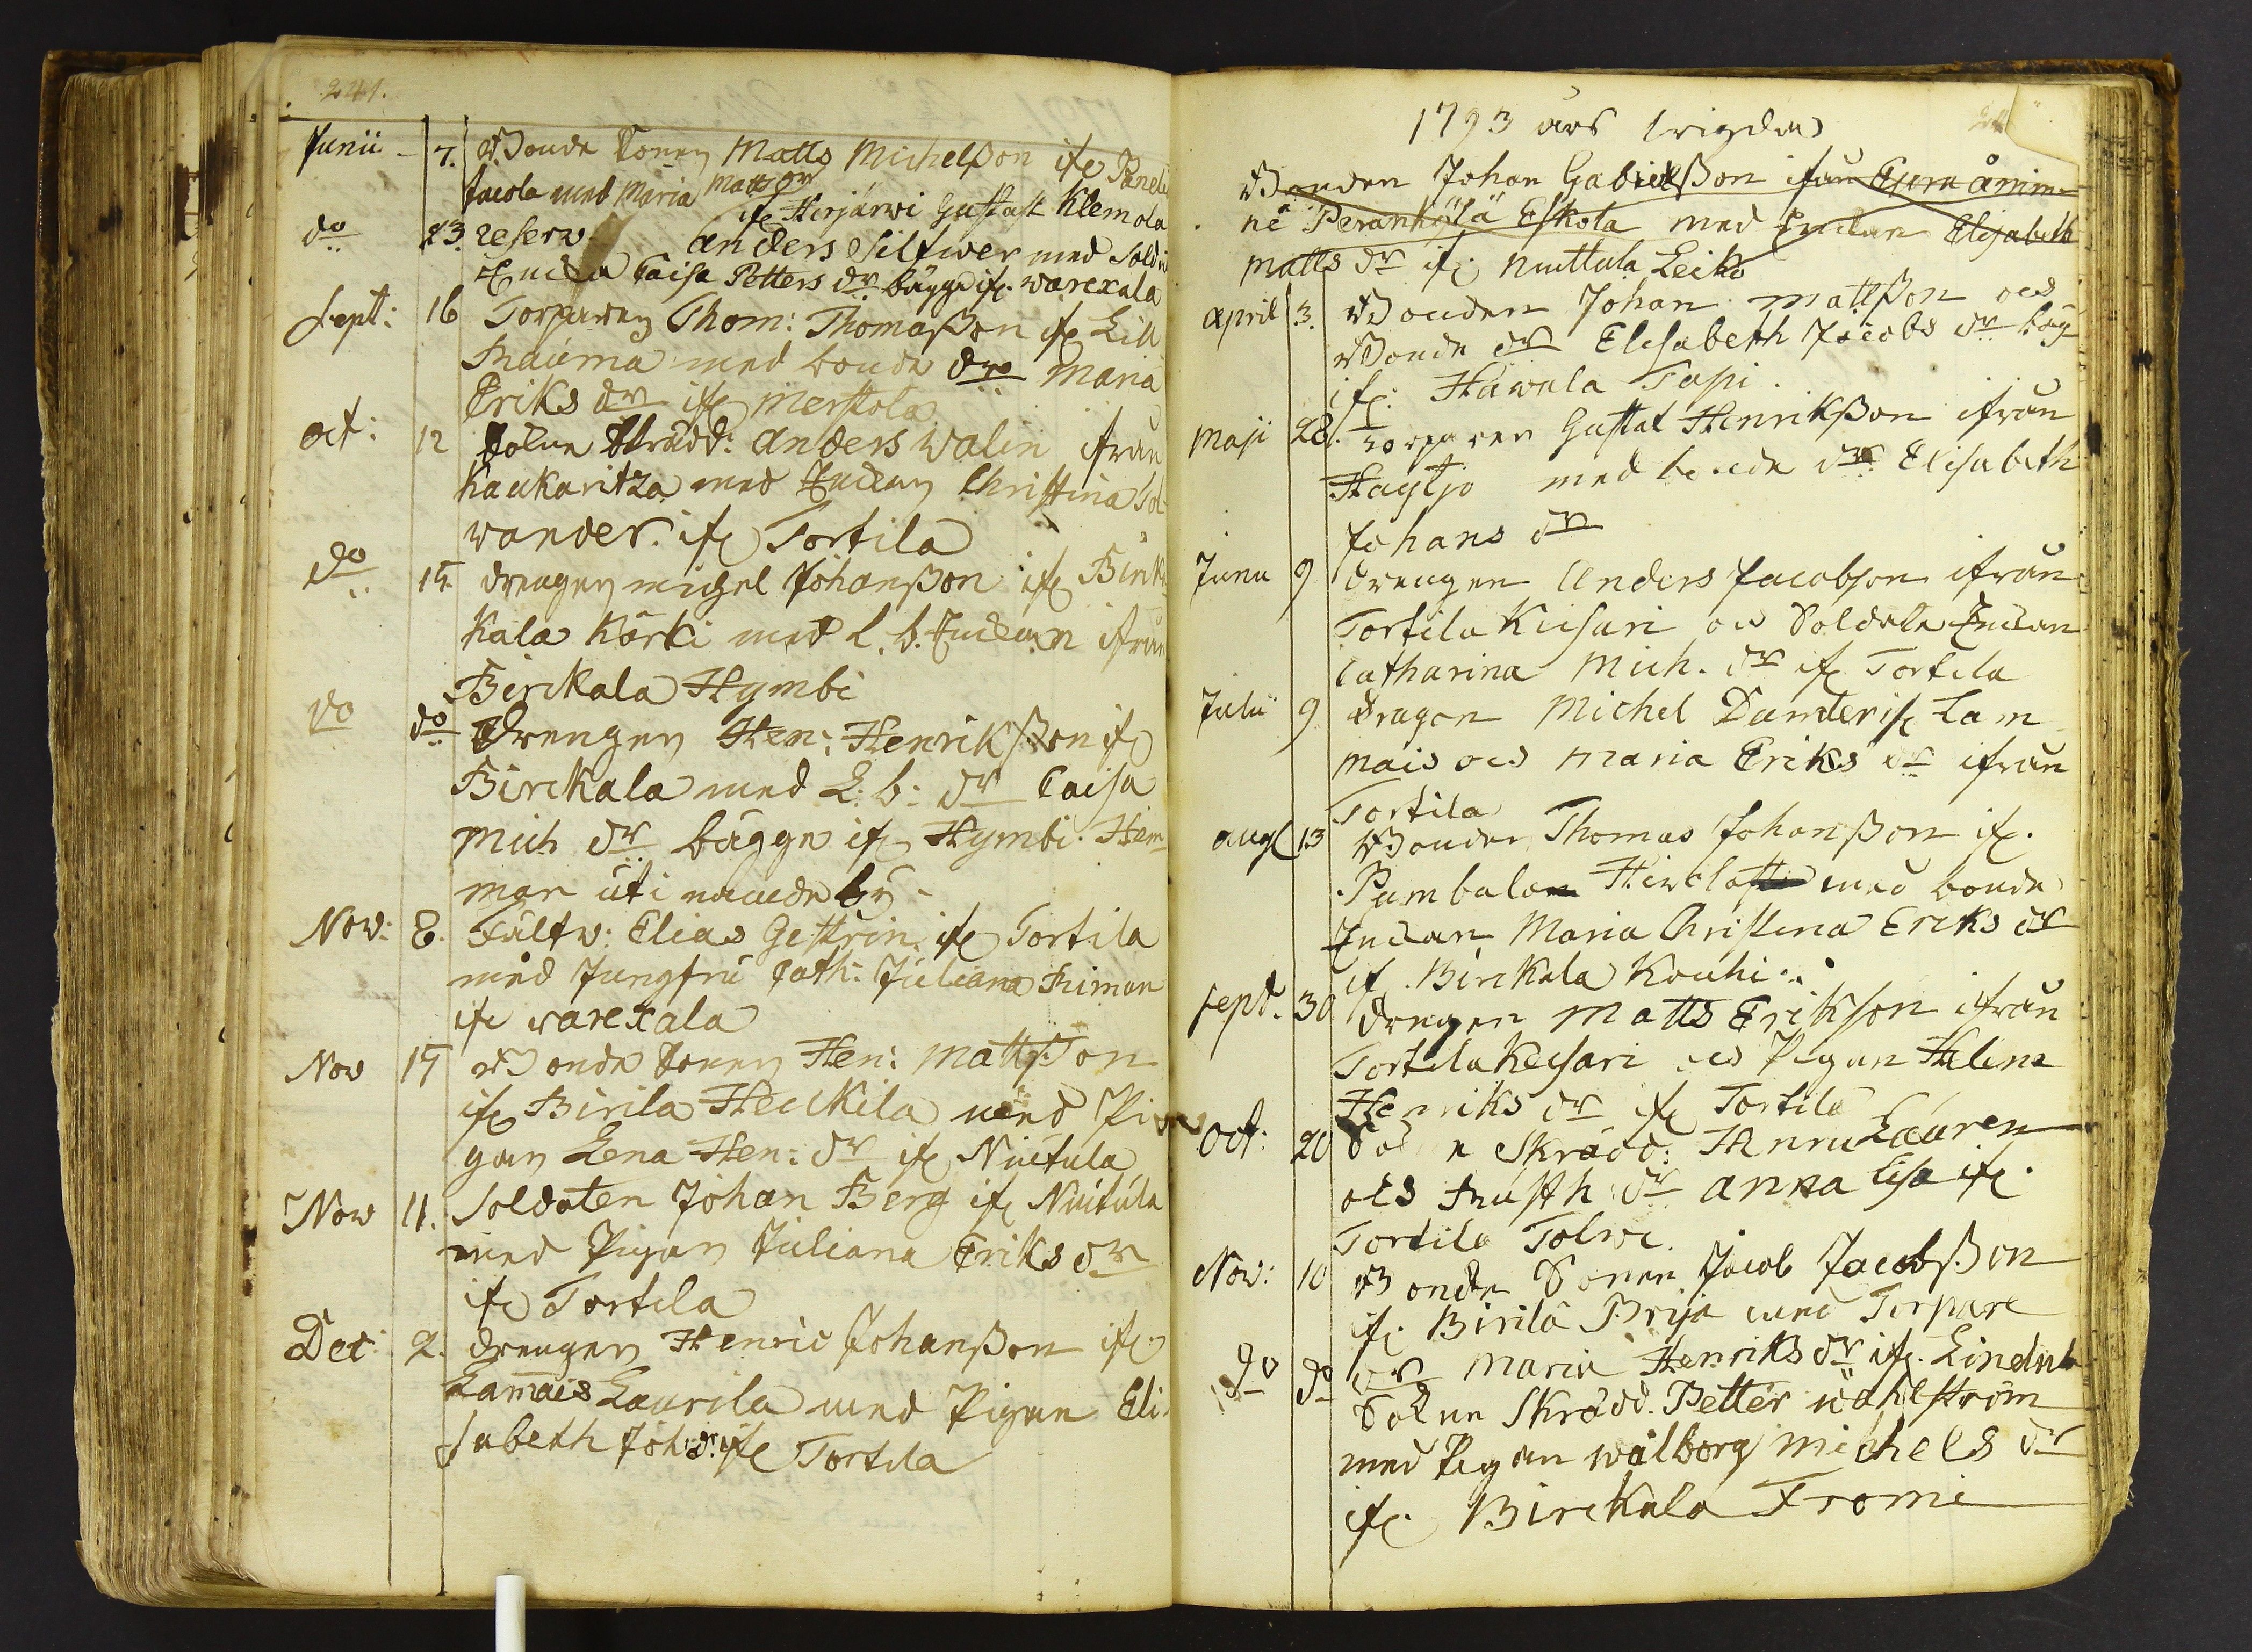 241.
Junii - 7. Bonde Sonen Matts Michelßon ifr
Jacola med Maria Matts dr
ifr Harjärwi Gustaf Klemola
do 23. reserw. Anders Silfwer med Sold
Enka Caisa Petters dr bägge ifr. warexala
Sept: 16 Torparen Thom: Thomaßon ifr Lill
Rauma med bonde dr Maria
Eriks dr ifr Merstola
Oct: 12 Sokne Skrädd: Anders Walin ifrån
Kaukaritza med Enkan Christina Tol-
wander. ifr Tortila
do 15. drengen Michel Johanßon ifr Birk
kala Körki med L. b. Enkan ifrån
Birckala Hymbi
do do Drengen Hen: Henrikßon ifr
Birckala med L: b: dr Caisa
Mich dr bägge ifr Hymbi Hem
man uti nämde by -
Nov: 8. Fältw: Elias Gestrin ifr Tortila
med Jungfru Cath: Juliana Ruman
ifr warexala
Nov 15 Bonde Sonen Hen: Mattßon
ifr Birila Heickila med Pi
gan Lena Hen: dr ifr Niutula
Nov 11. Soldaten Johan Berg ifr Niutula
med Pigan Juliana Eriks dr
ifr Tortila
Dec: 2. drengen Henric Johanßon ifr
Lamais Laurila med Pigan Eli-
sabeth Joh: dr ifr Tortila
1793 års wigda
Bonden Johan Gabrielßon ifrån
ne Peränkylä Eskola med Enkan Elisabeth
Matts dr ifr. Niuttula Leiko
April 3. Bonden Johan Mattßon och
Bonde dr Elisabeth Jacobs dr bäg
ifr: Hawala Tapi.
Maji 28. Torparen Gustaf Henrikßon ifrån
med bonde dr Elisabeth
Johans dr
Junii 9 drengen Anders Jacobson ifrån
Tortila Kiisari och Soldate Enkan
Catharina Mich. dr ifr Tortila
Julii 9 Dragon Michel Damler ifr Lam
mais och Maria Eriks dr ifrån
Tortila
Aug 13 Bonden Thomas Johanßon ifr.
Pambala med bonde
Enkan Maria Christina Eriks dr
ifr. Birckala Kouhi.
Sept. 30 drengen Matts Erikson ifrån
Tortila Keisari och Pigan Helena
Henriks dr ifr Tortila
Oct: 20 Sokne Skrädd: Henric Lauren
och Rusth: dr Anna Lisa ifr.
Tortila Tolwi.
Nov: 10 Bonde Sonen Jacob Jacobßon
ifr. Birila Prija med Torpare
dr Maria Henriks dr ifr. Lindula
do do Sokne Skrädd. Petter Wahlström
med Pigan Walborg Michels dr
ifr. Birckala Fromi